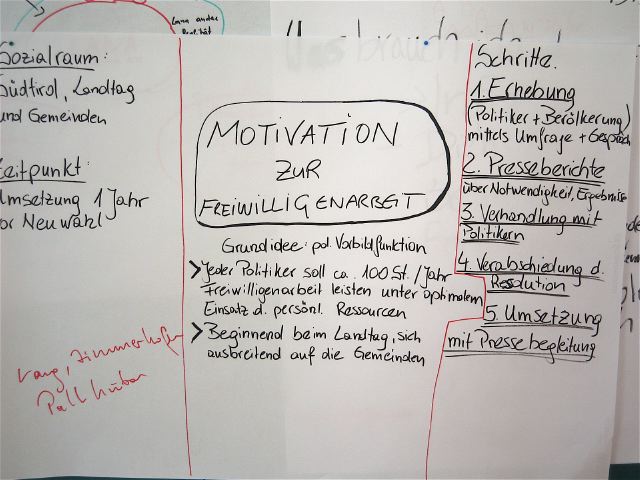 Sozialraum:
Südtirol, Landtag
und Gemeinden
Zeitpunkt:
Umsetzung 1 Jahr
vor Neuwahl
MOTIVATION
ZUR
FREIWILLIGENARBEIT
Grundidee: pol. Vorbildfunktion
> Jeder Politiker soll ca. 100 St./Jahr
Freiwilligenarbeit leisten unter optimalem
Einsatz d. persönl. Ressourcen
> Beginnend beim Landtag, sich
ausbreitend auf die Gemeinden
Schritte:
1. Erhebung
(Politiker + Bevölkerung)
mittels Umfrage + Gespräch
2. Presseberichte
über Notwendigkeit, Ergebnisse
3. Verhandlung mit
Politikern
4. Verabschiedung d.
Resolution
5. Umsetzung
mit Pressebegleitung